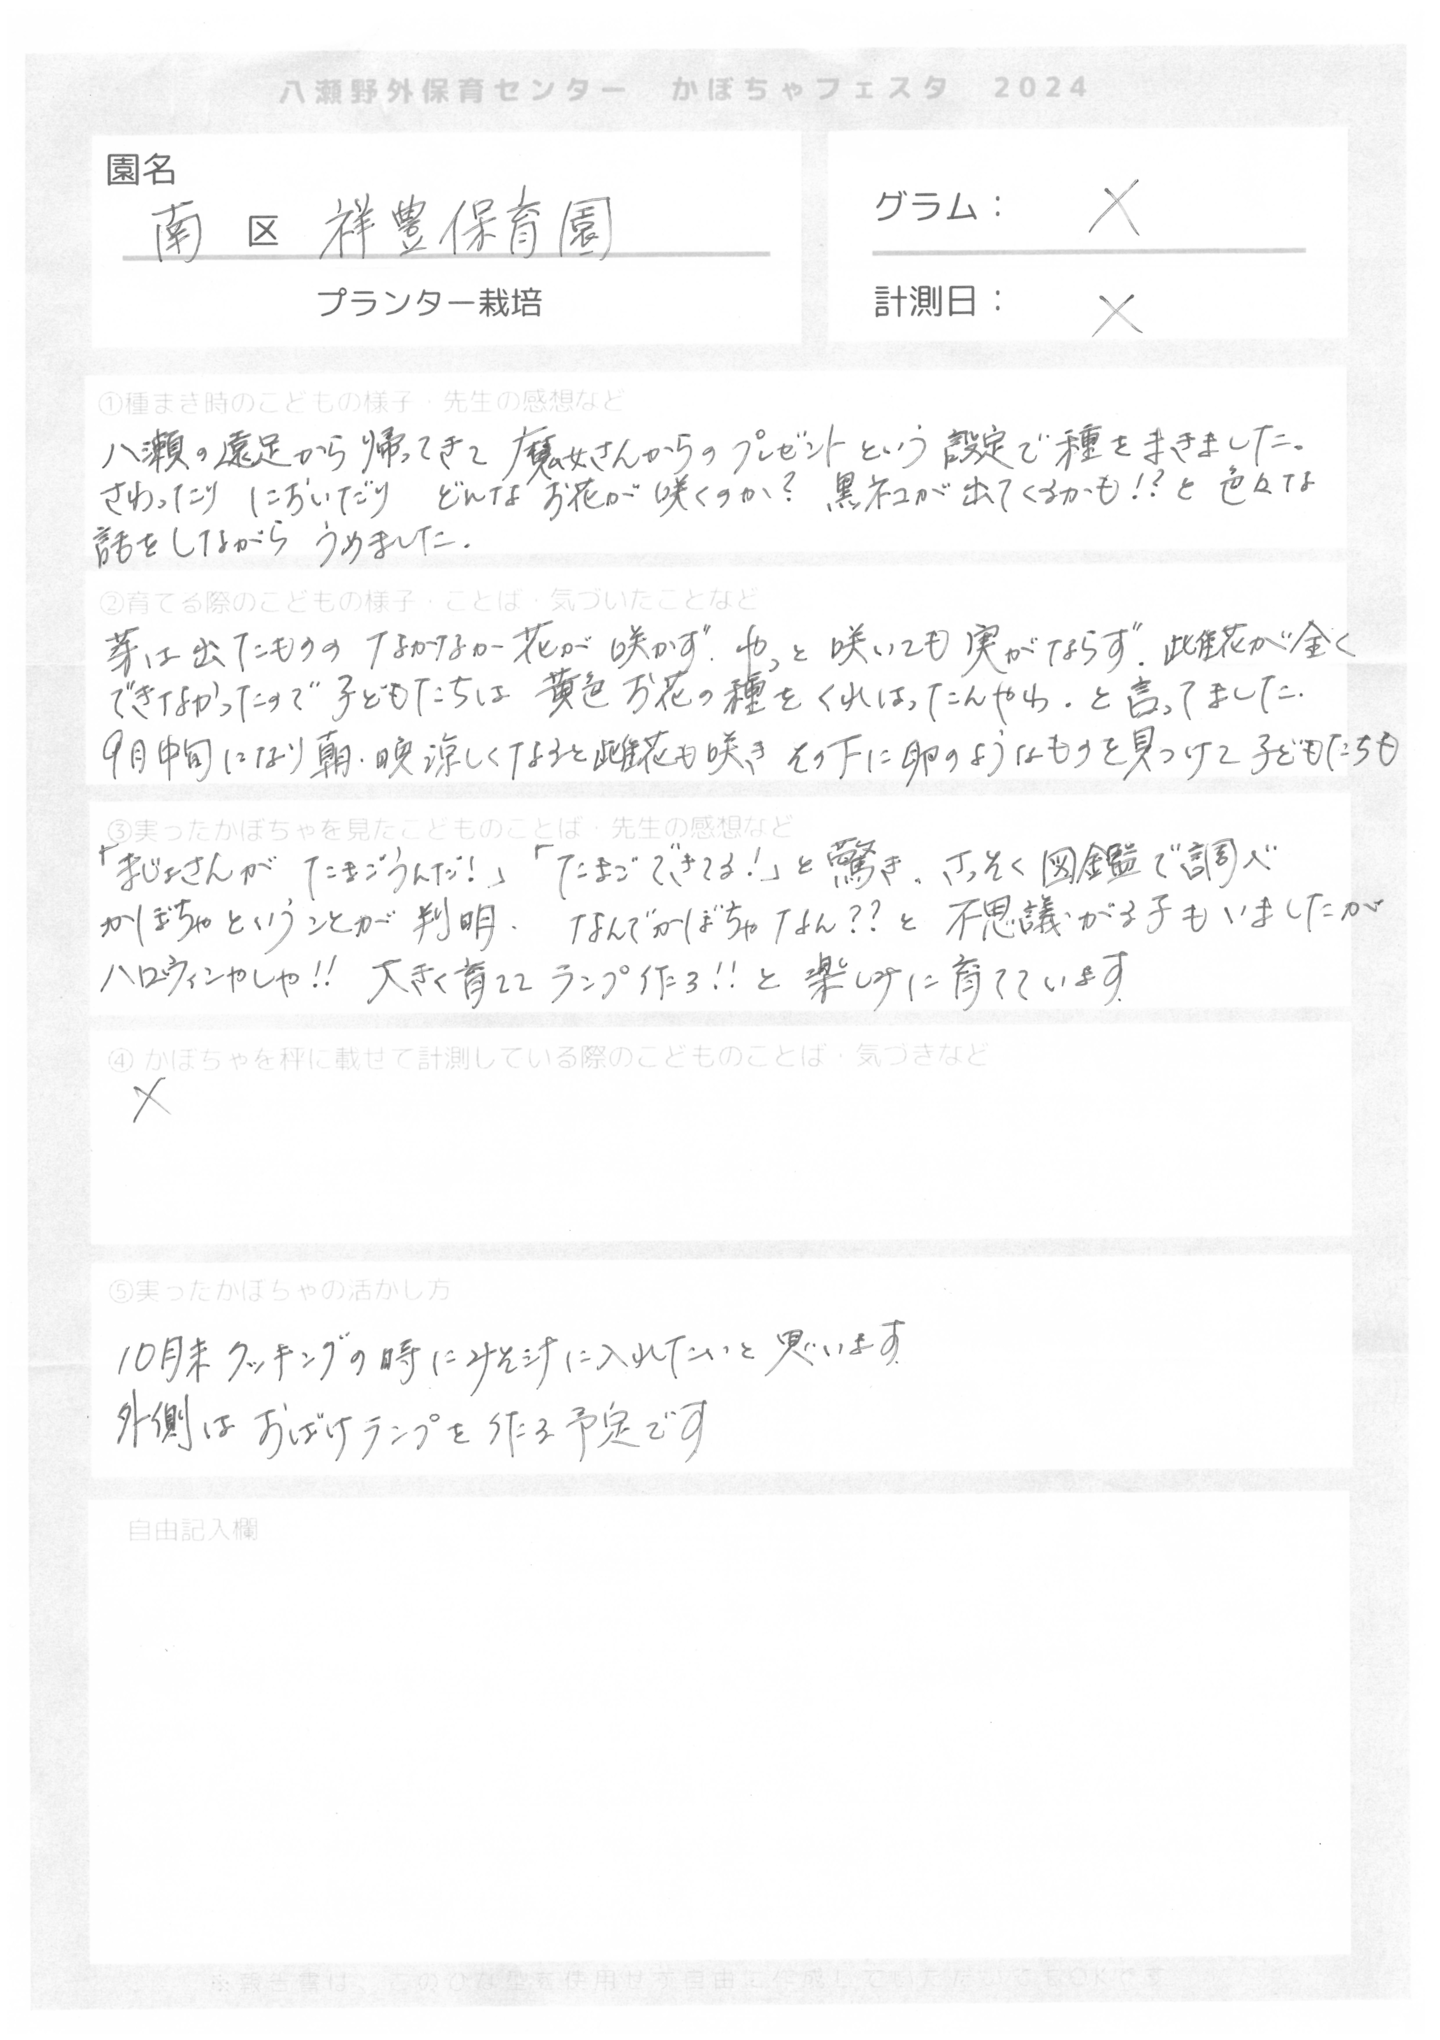 八瀬野外保育センター　かぼちゃフェスタ　2024
園名
南 区 祥豊保育園
プランター栽培
グラム： ×
計測日： ×
①種まき時のこどもの様子・先生の感想など
八瀬の遠足から帰ってきて 魔女さんからのプレゼントという 設定で種をまきました。
さわったり においだり どんなお花が咲くのか? 黒ネコが出てくるかも!?と色々な
話をしながら うめました.
②育てる際のこどもの様子・ことば・気づいたことなど
芽は出たものの なかなか花が咲かず. やっと咲いても実がならず. 雌花が全く
できなかったので子どもたちは 黄色お花の種をくれはったんやわ. と言ってました.
9月中旬になり朝・晩涼しくなると雌花も咲き その下に卵のようなものを見つけて子どもたちも
③実ったかぼちゃを見たこどものことば・先生の感想など
「まじょさんが たまごうんだ!」「たまごできてる!」と驚き、さっそく図鑑で調べ
かぼちゃということが判明. なんでかぼちゃなん??と 不思議がる子もいましたが
ハロウィンやしや!! 大きく育てて ランプ作たろ!!と 楽しみに育てています.
④ かぼちゃを秤に載せて計測している際のこどものことば・気づきなど
×
⑤実ったかぼちゃの活かし方
10月末クッキングの時にみそ汁に入れたいと思います.
外側は おばけランプを 作る予定です
自由記入欄
※報告書は、このひな型を使用せず自由に作成していただいてもOKです